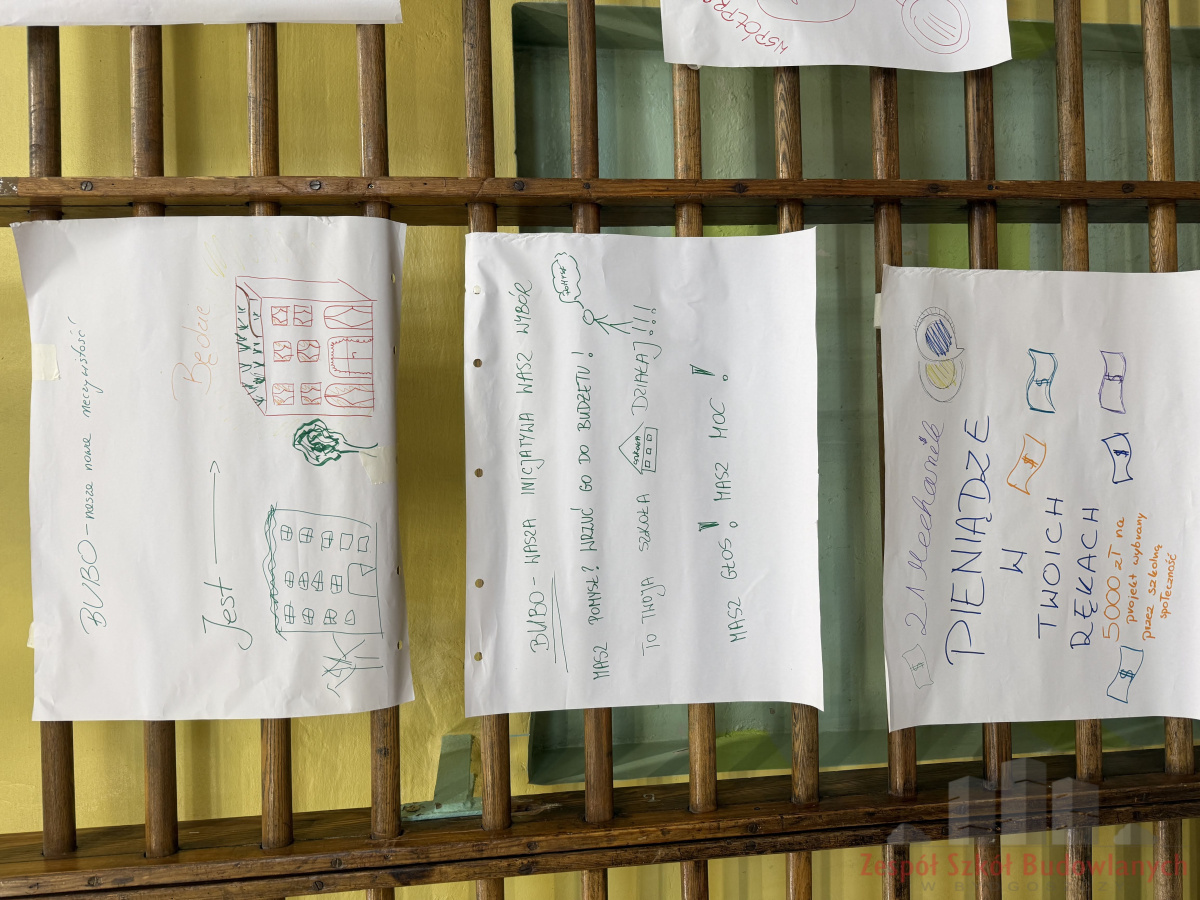 WSPÓŁPRA
BUBO - nasza nowa rzeczywistość
Jest
Będzie
BUBO - WASZA INICJATYWA WASZ WYBÓR
MASZ POMYSŁ? WRZUĆ GO DO BUDŻETU!
POMYSŁ
TO TWOJA SZKOŁA DZIAŁAJ!!!
SZKOŁA
MASZ GŁOS! MASZ MOC!
21 Mechanik
PIENIĄDZE
W
TWOICH
RĘKACH
5000 zł na
projekt wybrany
przez szkolną
społeczność
Zespół Szkół Budowlanych
W BYDGOSZCZY